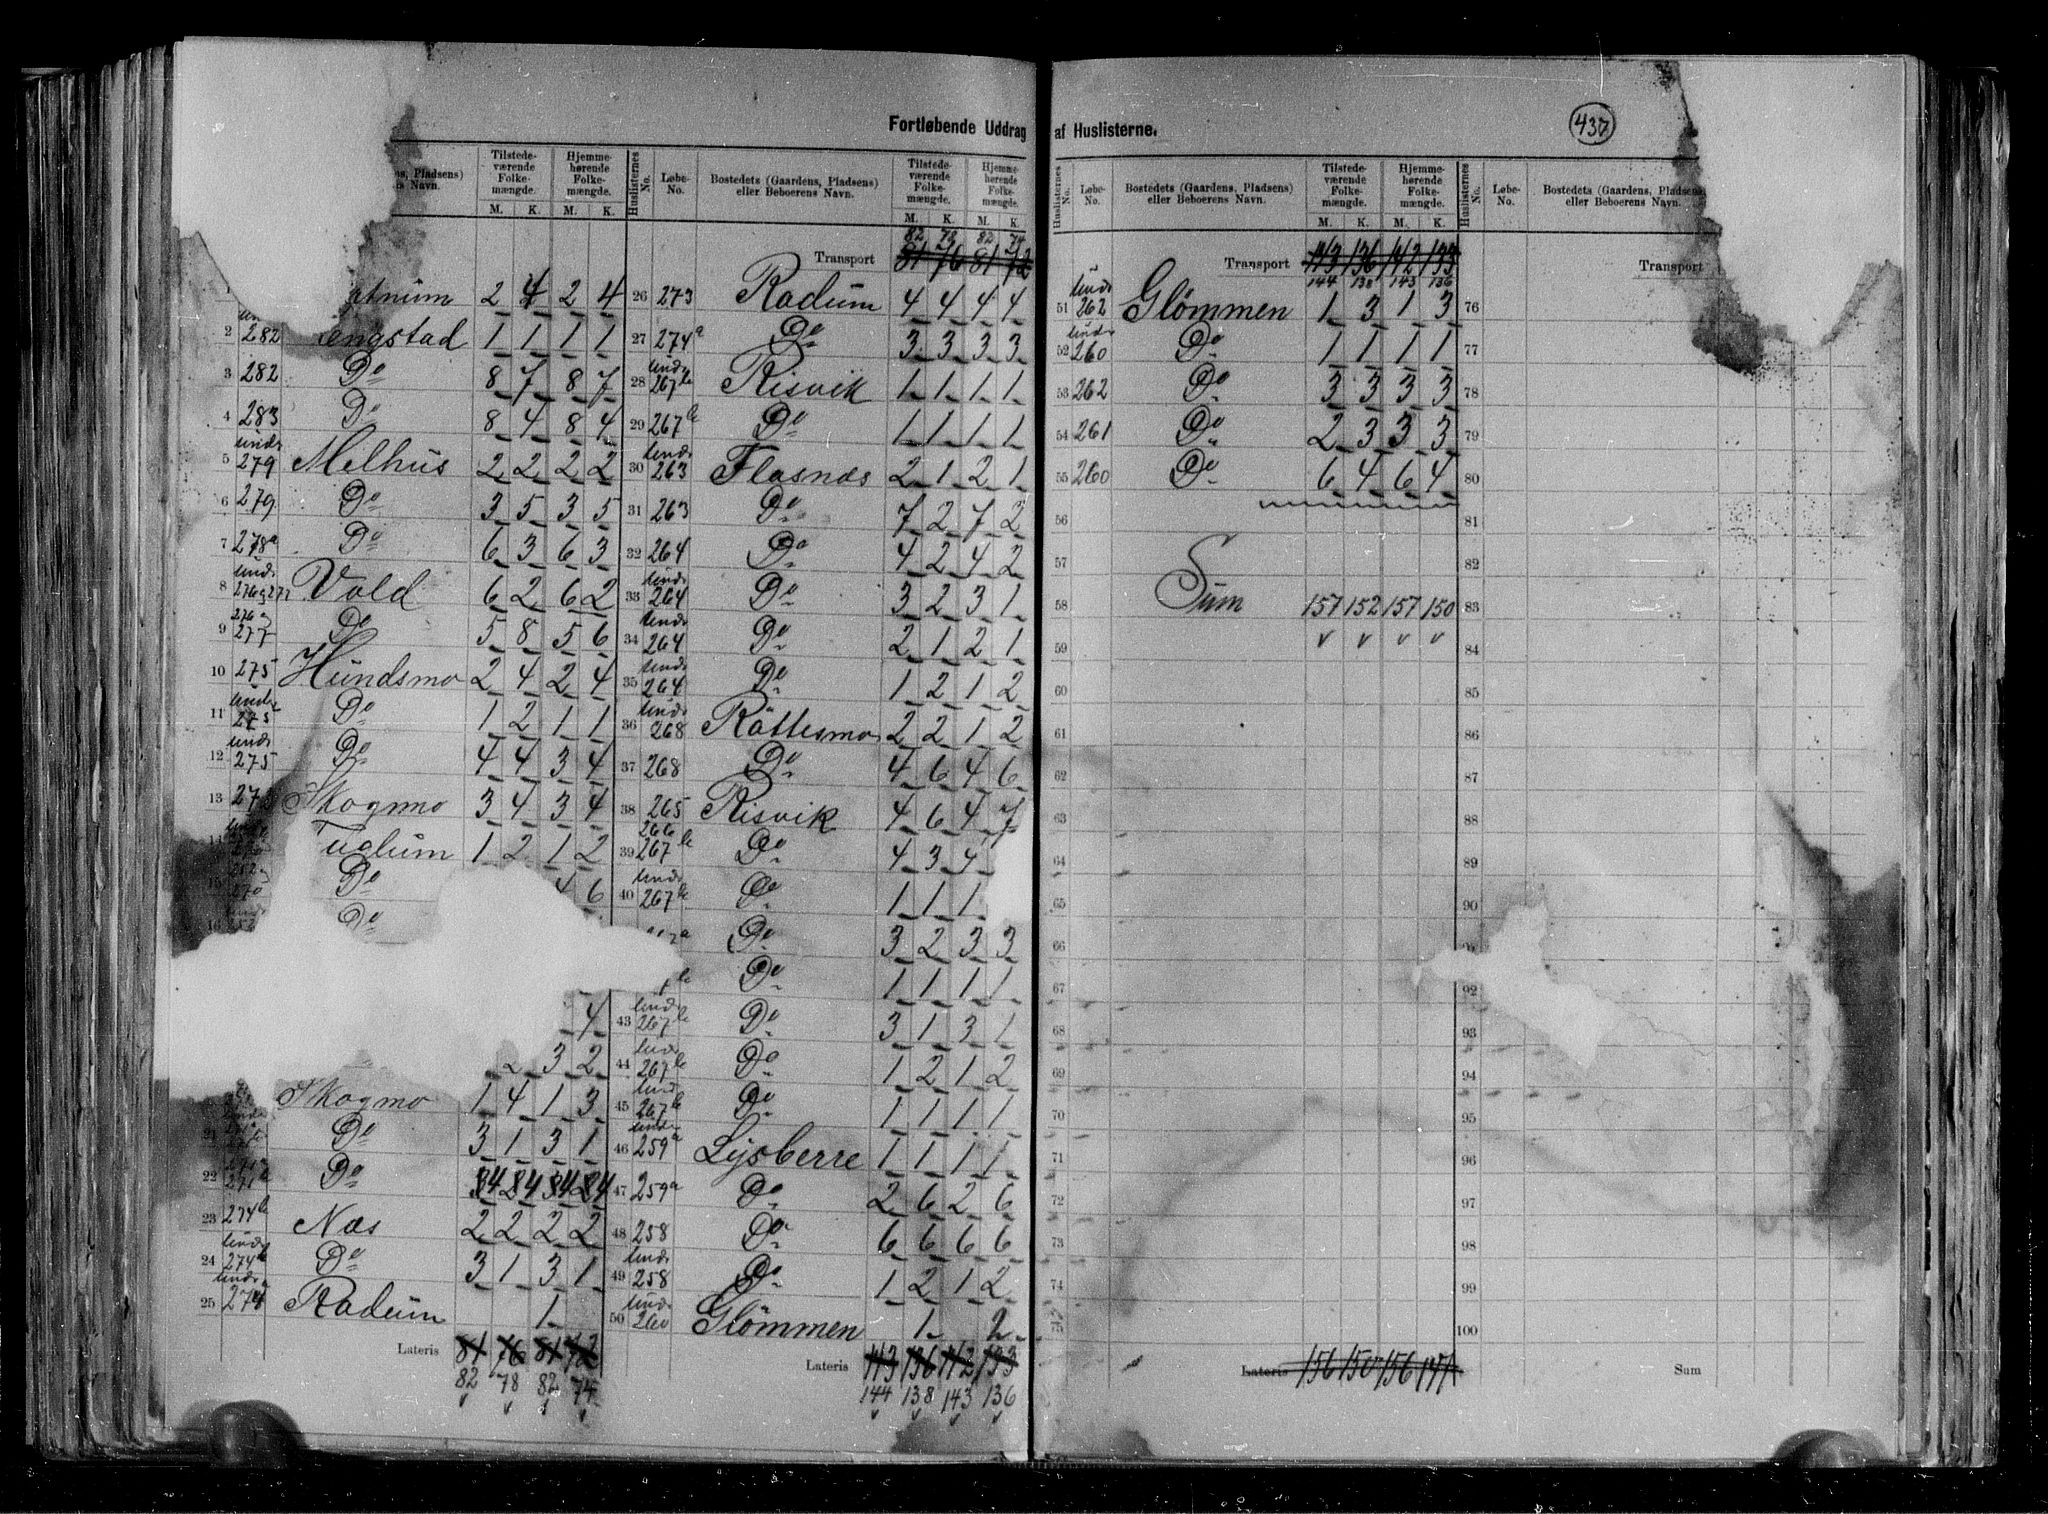 Fortløbende Uddrag af Huslisterne.
437
ns, Pladsens) ers Navn. Tilstede-værende Folke-mængde. M. K. Hjemme-hørende Folke-mængde. M. K.
2 4 2 4
2 282 engstad 1 1 1 1
3 282 Do 8 7 8 7
4 283 Do 8 4 8 4
5 und: 279 Melhus 2 2 2 2
6 279 Do 3 5 3 5
7 278a Do 6 3 6 3
8 Vold 6 2 6 2
9 276 277 Do 5 8 5 6
10 275 Hundsmo 2 4 2 4
11 und: 275 Do 1 2 1 1
12 und: 275 Do 4 4 3 4
13 Skogmo 3 4 3 4
1 2 1 2
Do 6
Do
4
2 3 2
Skogmo 1 4 1 3
21 Do 3 1 3 1
22 Do 4 4 4 4
23 274b Næs 2 2 2 2
24 und: 274b Do 3 1 3 1
25 und: 274 Radum 1
Lateris 81 76 81 72
82 78 82 74
Huslisternes No. Løbe-No. Bostedets (Gaardens, Pladsens) eller Beboerens Navn. Tilstede-værende Folke-mængde. M. K. Hjemme-hørende Folke-mængde. M. K.
82 78 82 74
Transport 81 76 81 72
26 273 Radum 4 4 4 4
27 274a Do 3 3 3 3
28 und: 267b Risvik 1 1 1 1
29 267b Do 1 1 1 1
30 und: 263 Flasnæs 2 1 2 1
31 263 Do 7 2 7 2
32 264 Do 4 2 4 2
33 und: 264 Do 3 2 3 1
34 und: 264 Do 2 1 2 1
35 und: 264 Do 1 2 1 2
36 und: 268 Röttesmo 2 2 1 2
37 268 Do 4 6 4 6
38 265 Risvik 4 6 4 7
39 266 267b Do 4 3 4
40 und: 267b Do 1 1 1
Do 3 2 3 3
Do 1 1 1 1
43 und: 267b Do 3 1 3 1
44 und: 267b Do 1 2 1 2
45 und: 267b Do 1 1 1 1
46 und: 259a Lysberre 1 1 1 1
47 259a Do 2 6 2 6
48 258 Do 6 6 6 6
49 und: 258 Do 1 2 1 2
50 und: 260 Glömmen 1 2
Lateris 143 136 142 133
144 138 143 136
Huslisternes No. Løbe-No. Bostedets (Gaardens, Pladsens) eller Beboerens Navn. Tilstede-værende Folke-mængde. M. K. Hjemme-hørende Folke-mængde. M. K.
Transport 143 136 142 133
144 138 143 136
51 und: 262 Glömmen 1 3 1 3
52 und: 260 Do 1 1 1 1
53 262 Do 3 3 3 3
54 261 Do 2 3 3 3
55 260 Do 6 4 6 4
56
57
58 Sum 157 152 157 150
59
60
61
62
63
64
65
66
67
68
69
70
71
72
73
74
75
Lateris 156 150 156 147
Huslisternes No. Løbe-No. Bostedets (Gaardens, Pladsens) eller Beboerens Navn.
Transport
76
77
78
79
80
81
82
83
84
85
86
87
88
89
90
92
93
94
95
96
97
98
99
100
Sum